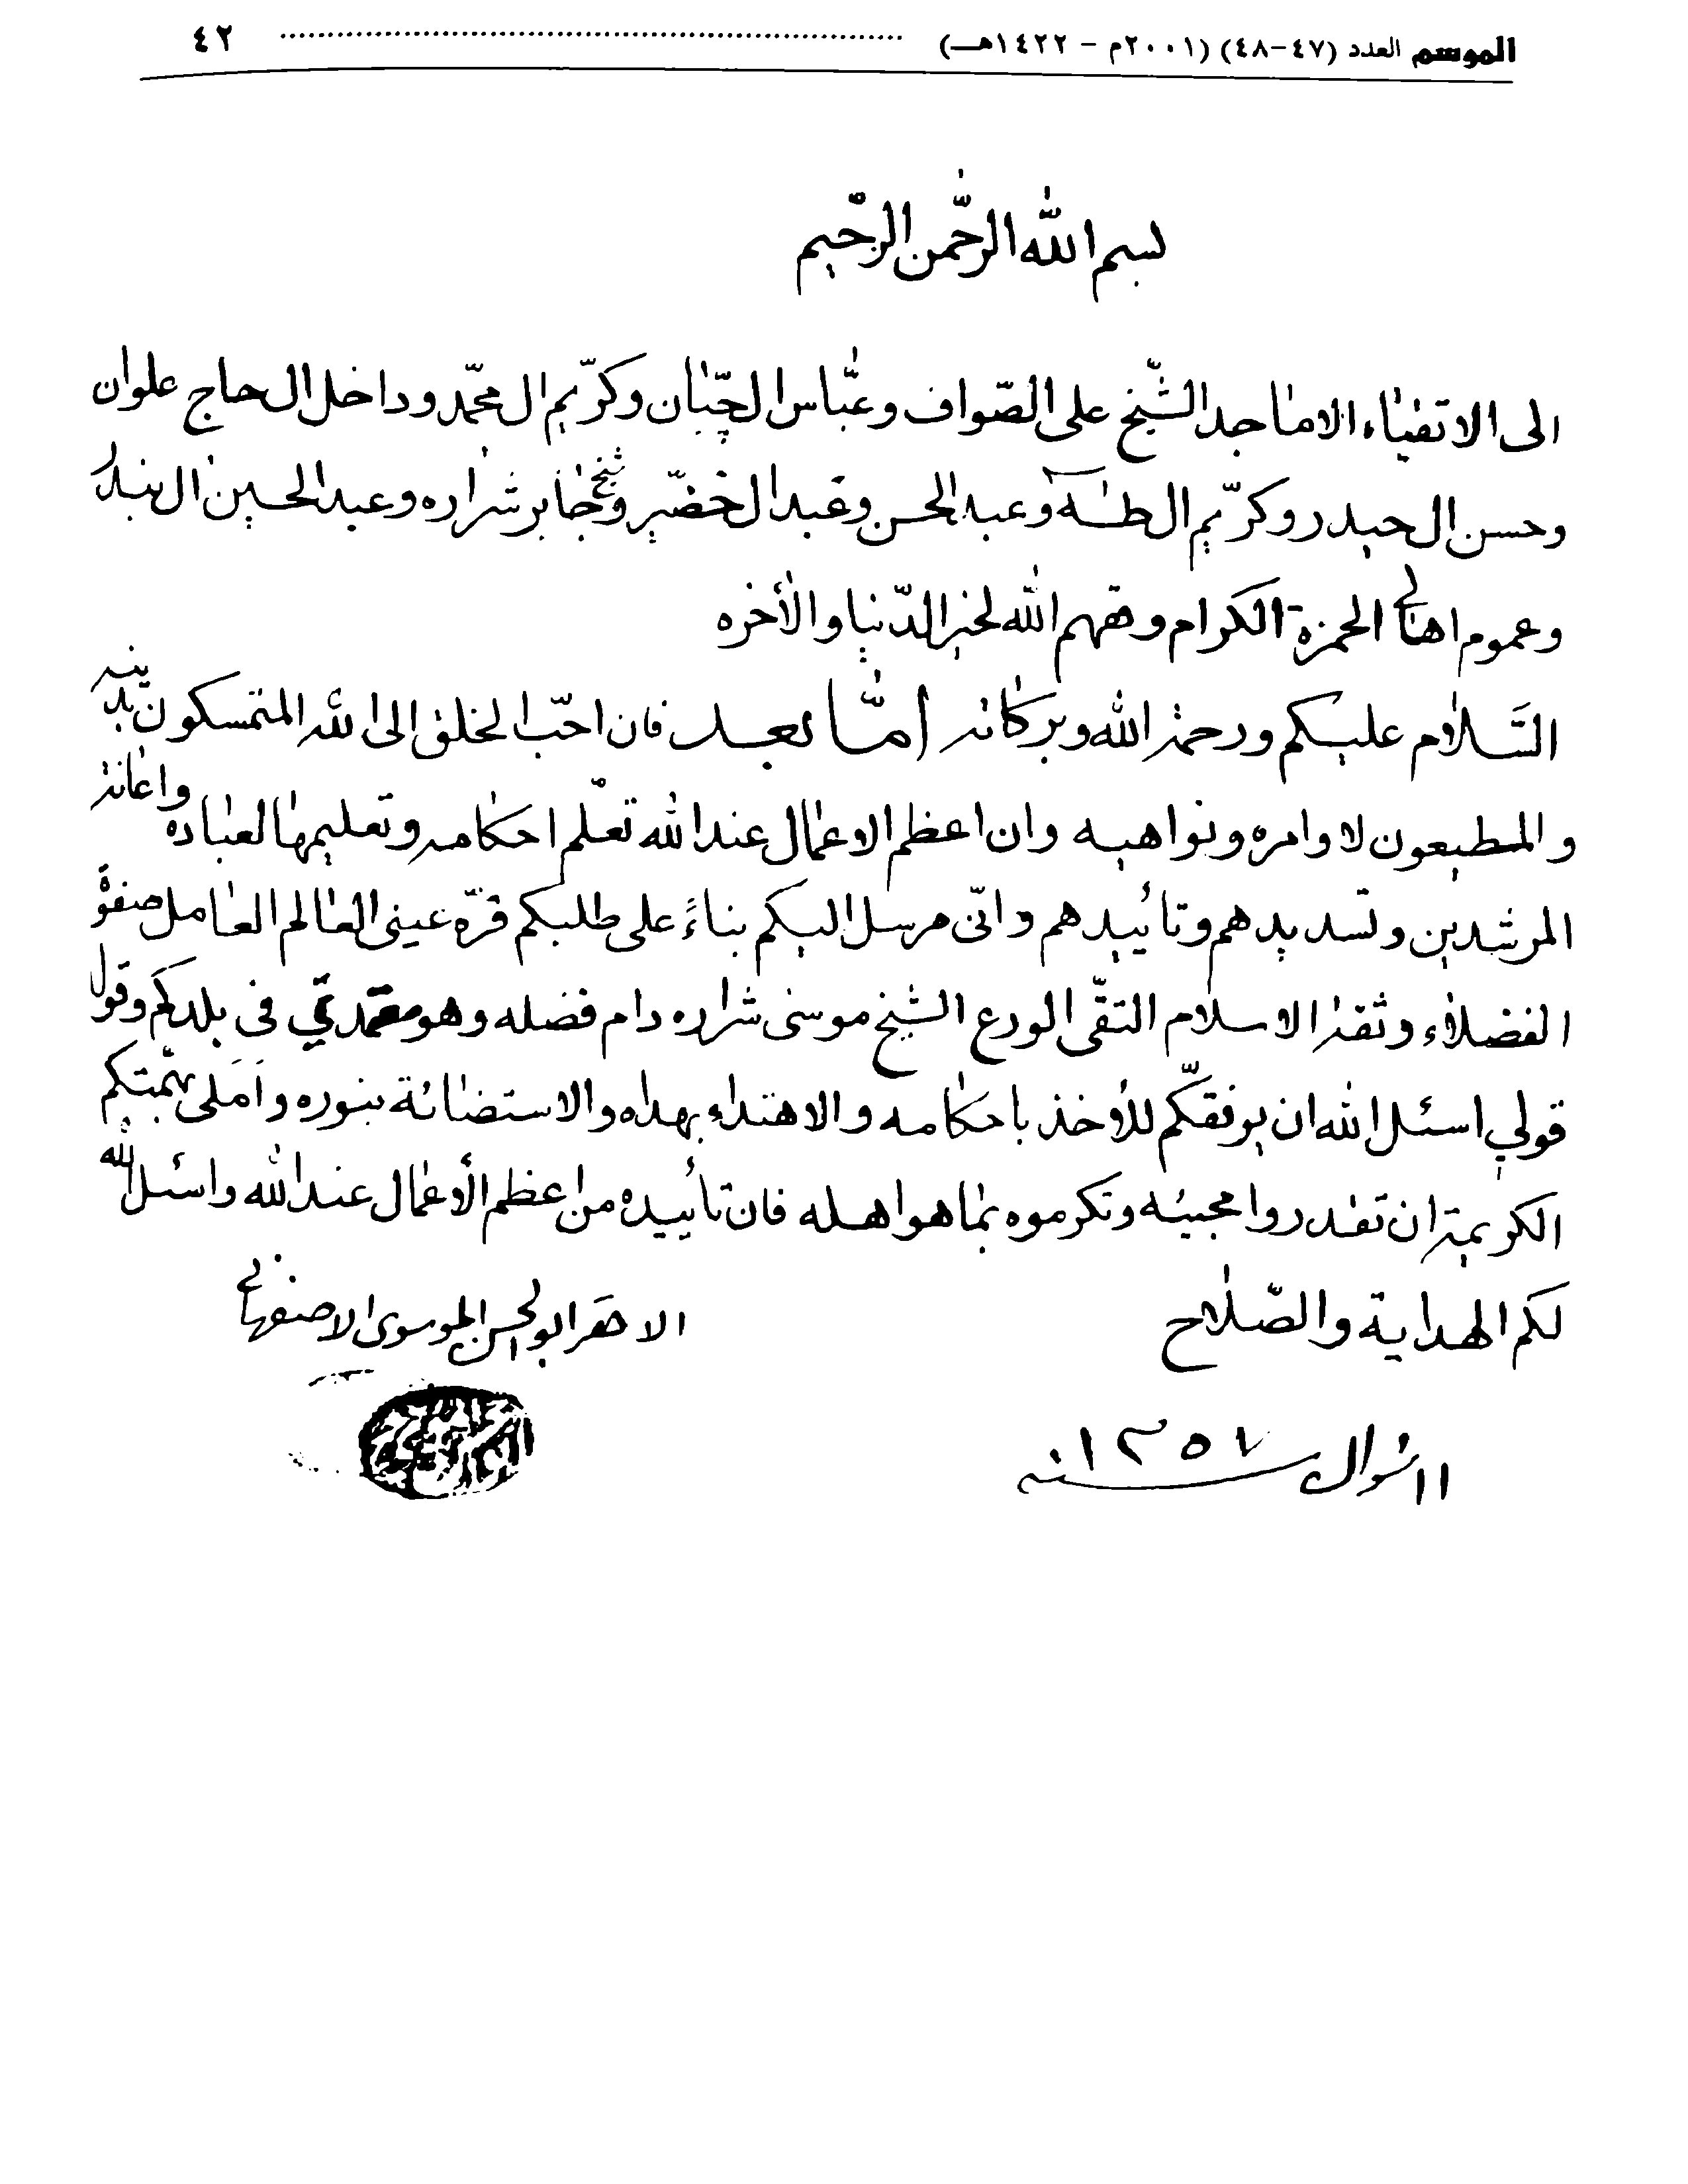 الموسم العدد (٤٧-٤٨) (٢٠٠١م - ١٤٢٢هـ) ٤٢
بسم الله الرحمن الرحيم
الى الاتقياء الاماجد الشيخ على الصواف وعباس الچبان وكريم ال محمد وداخل ال حاج علوان
وحسن ال حيدر وكريم ال طه وعبد الحسن وعبد ال خضير وشيخ جابر شراره وعبد الحسين ال بندر
وعموم اهالي الحمزة الكرام وفقهم الله لخير الدنيا والأخره
السلام عليكم ورحمة الله وبركاته أما بعد فان احب الخلق الى الله المتمسكون بدينه
والمطيعون لاوامره ونواهيه وان اعظم الاعمال عند الله تعلم احكامه وتعليمها لعباده واعانة
المرشدين وتسديدهم وتأييدهم واني مرسل اليكم بناءً على طلبكم قرة عيني العالم العامل صفوة
الفضلاء وثقة الاسلام التقي الورع الشيخ موسى شراره دام فضله وهو معتمدي في بلدكم وقوله
قولي اسئل الله ان يوفقكم للأخذ باحكامه والاهتداء بهداه والاستضائة بنوره وأملى بهمتكم
الكريمة ان تقدروا مجيئه وتكرموه بما هو اهله فان تأييده من اعظم الأعمال عند الله واسئل الله
لكم الهداية والصلاح
الاحقر ابو الحسن الموسوى الاصفهاني
١١ شوال سنه ١٣٥٧